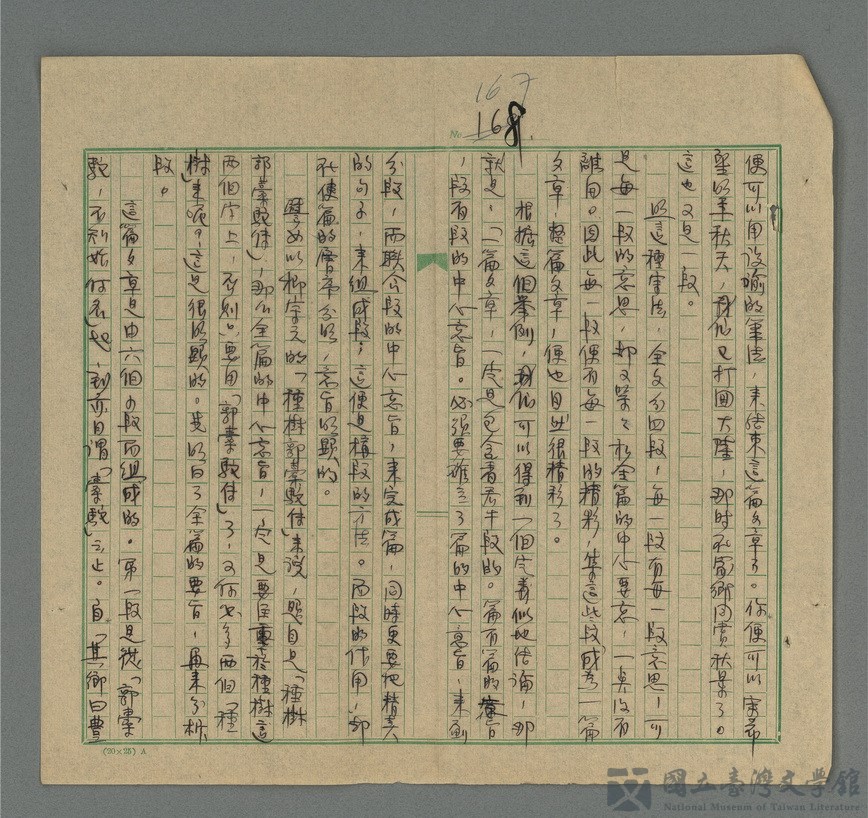 167
No. 168
便可以用設喻的筆法,來結束這篇文章了。你便可以寫希
望明年秋天,我們已打回大陸,那時在家鄉同賞秋景了。
這也又是一段。
照這種寫法,全文分四段,每一段有每一段意思,可
是每一段的意思,却又緊々和全篇的中心要意,一點沒有
離開。因此每一段便有每一段的精彩,集這些段成為一篇
文章,整篇文章,便也自然很精彩了。
根據這個舉例,我們可以得到一個定義似地結論,那
就是,「一篇文章,一定是包含着若干段的。篇有篇的意旨
,段有段的中心意旨。必須要確立了篇的中心意旨,來劃
分段,而聯合段的中心意旨,來完成篇,同時更要把精美
的句子,來組成段,這便是構段的方法。而段的作用,却
在使篇的層市分明,意旨明顯的。
譬如以柳宗元的「種樹郭橐駝傳」來說,題目是「種樹
郭橐駝傳」,那么全篇的中心意旨,一定是要注重在種樹這
兩個字上,否則只要用「郭橐駝傳」了,又何必多兩個「種
樹」來呢?這是很明顯的。先明白了全篇的要旨,再來分析
段。
這篇文章是由六個小段而組成的。第一段是從「郭橐
駝,不知始何名」起,到「亦自謂「橐駝」云止。自「其鄉曰豐
(20×25) A
國立臺灣文學館
National Museum of Taiwan Literature